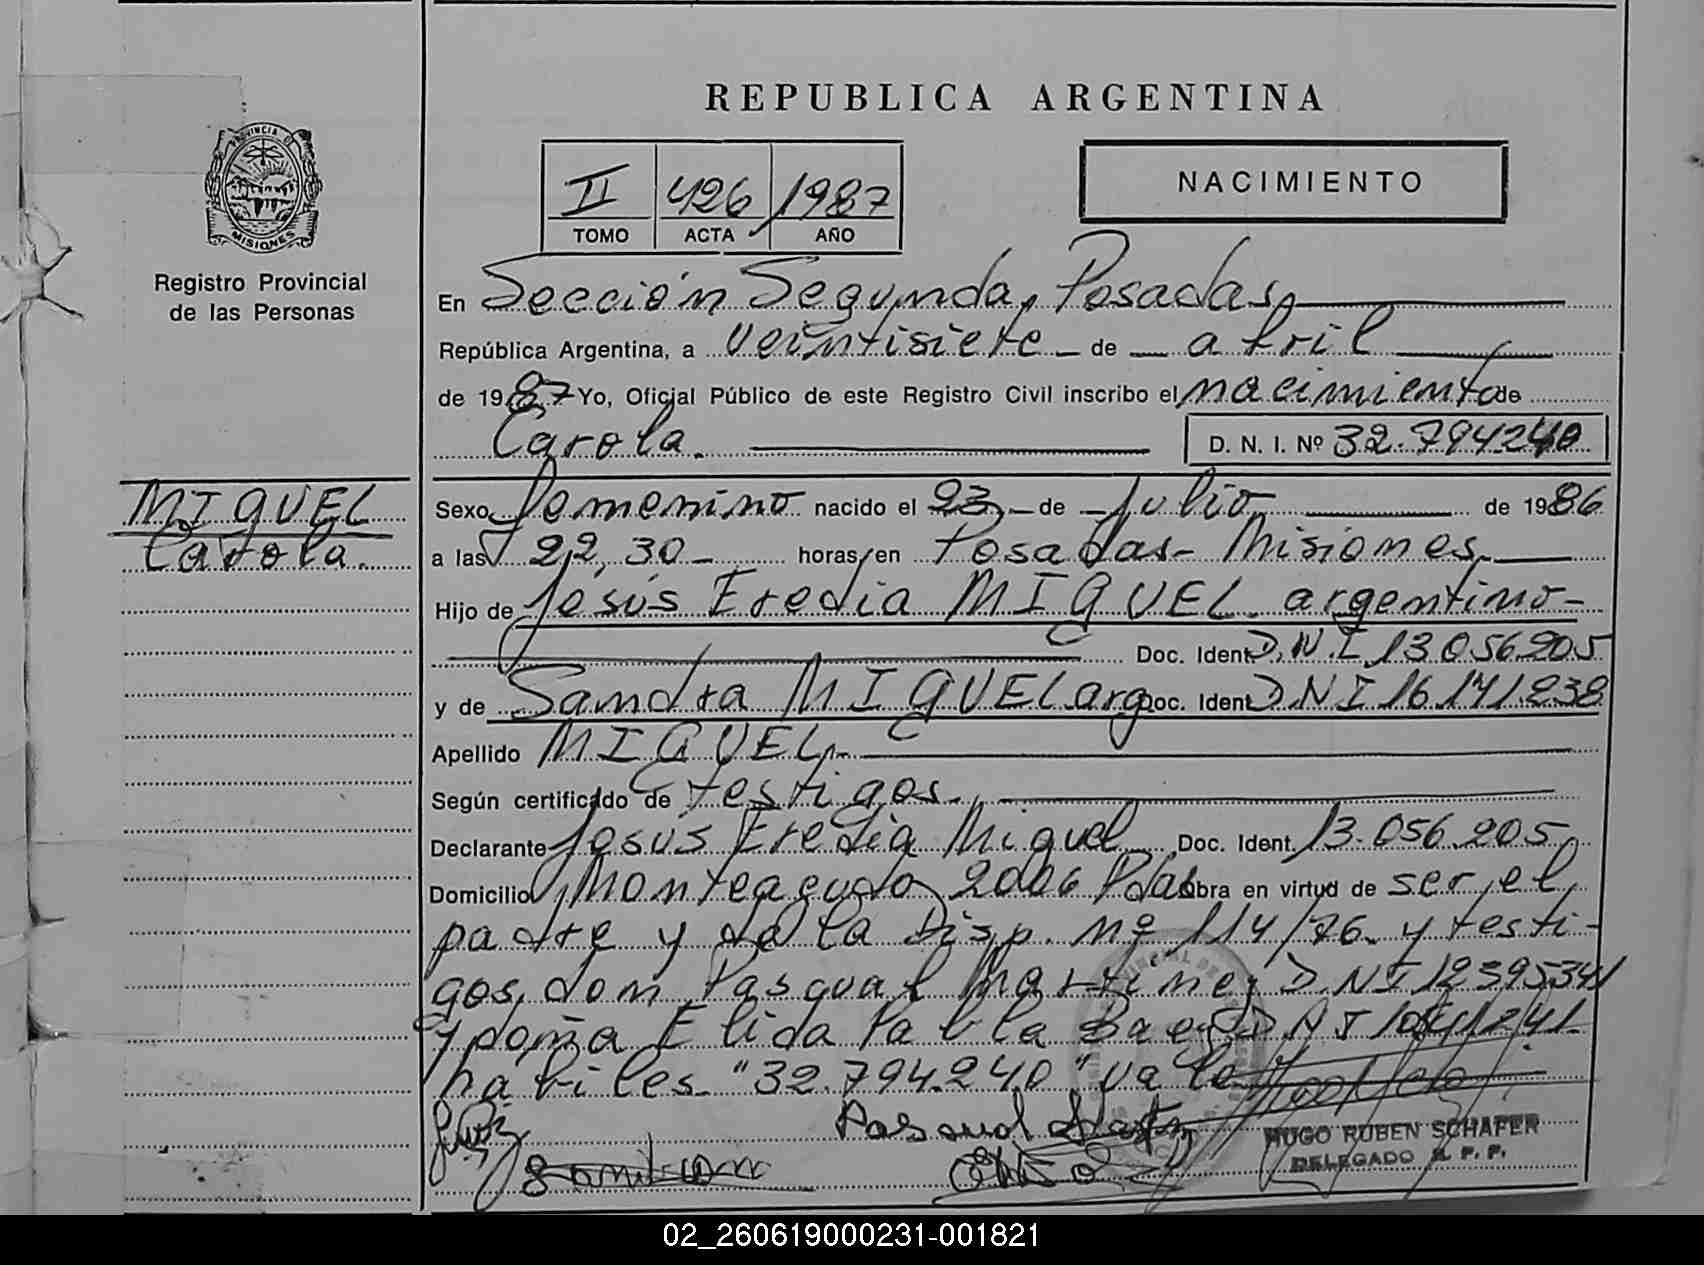 REPUBLICA ARGENTINA
PROVINCIA DE
MISIONES
Registro Provincial
de las Personas
II 426 1987
TOMO ACTA AÑO
NACIMIENTO
En Sección Segunda, Posadas,
República Argentina, a veintisiete de abril
de 1987 Yo, Oficial Público de este Registro Civil inscribo el nacimiento de
Carola.
D. N. I. Nº 32.794240
MIGUEL
Carola.
Sexo femenino nacido el 23 de Julio de 1986
a las 22,30 horas, en Posadas- Misiones
Hijo de Jesús Eredia MIGUEL argentino-
Doc. Ident D.N.I 13.056.205
y de Sandra MIGUEL arg Doc. Ident D.N.I 16.141.838
Apellido MIGUEL
Según certificado de testigos.
Declarante Jesús Eredia Miguel Doc. Ident. 13.056.205
Domicilio Monteagudo 2006 Pdas Obra en virtud de ser el
padre y de la Disp. nº 114/76 y testi-
gos, don Pasqual Martinez D.NI 12395341
y doña Elida Pabla Baez D.N.I
habiles "32.794.240" vale
HUGO RUBEN SCHAFER
DELEGADO R. P. P.
02_260619000231-001821